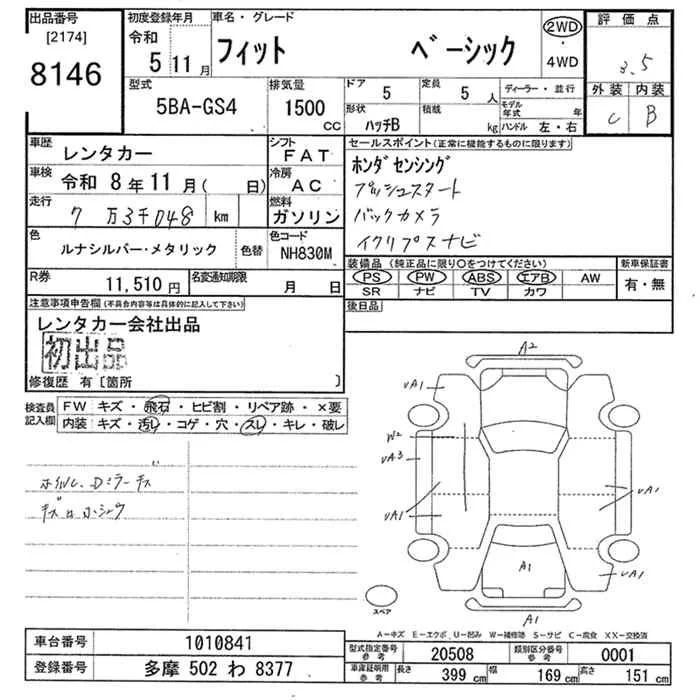 出品番号
[2174]
8146
初度登録年月
令和
5 11 月
車名・グレード
フィット ベーシック
2WD
・
4WD
評価点
3.5
外装 内装
C B
型式
5BA-GS4
排気量
1500
CC
ドア
5
定員
5 人
形状
ハッチB
積載
kg
ディーラー・並行
モデル年式 年
ハンドル 左・右
車歴
レンタカー
車検
令和 8年 11月( 日)
走行
7 万3千048 km
シフト
FAT
冷房
AC
燃料
ガソリン
色
ルナシルバー・メタリック
色替
色コード
NH830M
R券
11,510 円
名変通知期限
月 日
セールスポイント(正常に機能するものに限ります)
ホンダセンシング
プッシュスタート
バックカメラ
イクリプスナビ
装備品 (純正品に限り○をつけてください)
PS PW ABS エアB AW
SR ナビ TV カワ
新車保証書
有・無
後日品
注意事項申告欄(不具合内容等は具体的に記入して下さい)
レンタカー会社出品
初出品
修復歴 有〔箇所 〕
検査員記入欄
FW キズ・飛石・ヒビ割・リペア跡・×要
内装 キズ・汚レ・コゲ・穴・スレ・キレ・破レ
ホイル、Dミラーキズ
キズ凹ホシュウ
A2
UA1
W2
UA3
UA1
UA1
A1
UA1
A1
スペア
A−キズ E−エクボ U−凹み W−補修跡 S−サビ C−腐食 XX−交換済
車台番号
1010841
登録番号
多摩 502 わ 8377
型式指定番号
参考
20508
類別区分番号
参考
0001
車庫証明用
参考
長さ
399 cm
幅
169 cm
高さ
151 cm